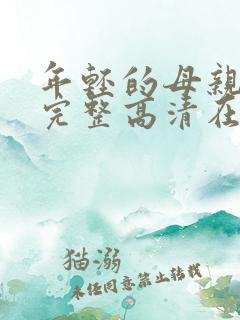 年轻的母亲
完整高清在
猫溺
未经同意禁止转载